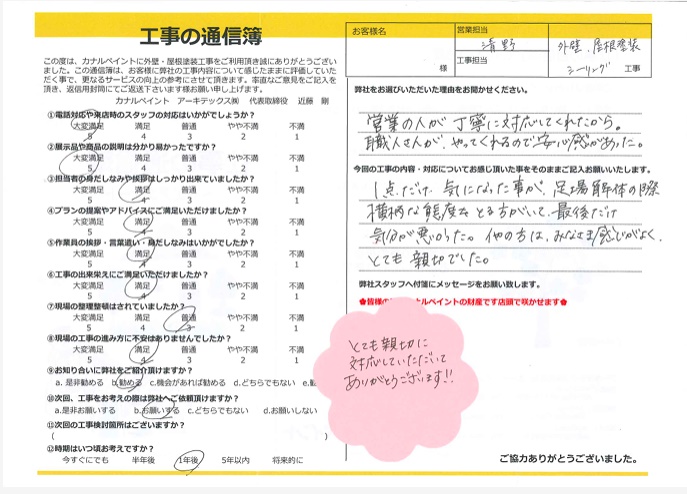 工事の通信簿
この度は、カナルペイントに外壁・屋根塗装工事をご利用頂き誠にありがとうござい
ました。この通信簿は、お客様に弊社の工事内容について感じたままに評価していた
だく事で、更なるサービスの向上の参考にさせて頂きます。率直なご意見をご記入を
頂き、返信用封筒にてご返送下さいます様お願い申し上げます。
カナルペイント アーキテックス㈱ 代表取締役 近藤 剛
①電話対応や来店時のスタッフの対応はいかがでしょうか?
大変満足 満足 普通 やや不満 不満
5 4 3 2 1
②展示品や商品の説明は分かり易かったですか?
大変満足 満足 普通 やや不満 不満
5 4 3 2 1
③担当者の身だしなみや挨拶はしっかり出来ていましたか?
大変満足 満足 普通 やや不満 不満
5 4 3 2 1
④プランの提案やアドバイスにご満足いただけましたか?
大変満足 満足 普通 やや不満 不満
5 4 3 2 1
⑤作業員の挨拶・言葉遣い・身だしなみはいかがでしたか?
大変満足 満足 普通 やや不満 不満
5 4 3 2 1
⑥工事の出来栄えにご満足いただけましたか?
大変満足 満足 普通 やや不満 不満
5 4 3 2 1
⑦現場の整理整頓はされていましたか?
大変満足 満足 普通 やや不満 不満
5 4 3 2 1
⑧現場の工事の進み方に不安はありませんでしたか?
大変満足 満足 普通 やや不満 不満
5 4 3 2 1
⑨お知り合いに弊社をご紹介頂けますか?
a. 是非勧める b.勧める c.機会があれば勧める d.どちらでもない e.勧
⑩次回、工事をお考えの際は弊社へご依頼頂けますか?
a.是非お願いする b.お願いする c.どちらでもない d.お願いしない
⑪次回の工事検討箇所はございますか?
( )
⑫時期はいつ頃お考えですか?
今すぐにでも 半年後 1年後 5年以内 将来的に
お客様名
様
営業担当
清野
工事担当
外壁、屋根塗装
シーリング 工事
弊社をお選びいただいた理由をお聞かせください。
営業の人が丁寧に対応してくれたから。
職人さんが、やってくれるので安心感があった。
今回の工事の内容・対応についてお感じ頂いた事をそのままご記入お願いいたします。
1点だけ 気になった事が、足場解体の際
横柄な態度をとる方がいて、最後だけ
気分が悪かった。他の方は、みなさま感じがよく、
とても親切でした。
弊社スタッフへ付箋にメッセージをお願い致します。
皆様の
ナルペイントの財産です店頭で咲かせます
とても親切に
対応していただいて
ありがとうございます!!
ご協力ありがとうございました。